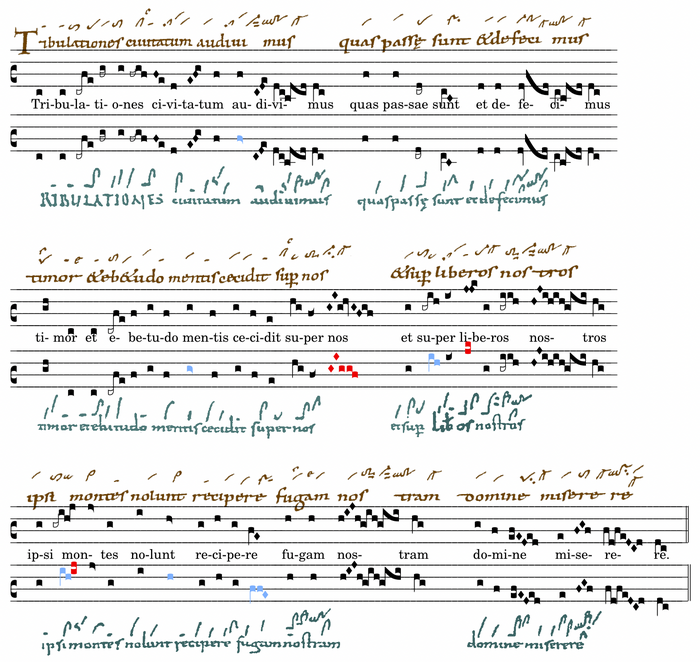 Tribulationes ciuitatum audiui mus quas passę sunt & defeci mus
Tri-bu-la- ti- o-nes ci-vi-ta-tum au- di-vi- mus quas pas-sae sunt et de- fe- ci- mus
RIBULATIONES ciuitatum audiuimus quas passę sunt et defecimus
timor & ebitudo mentis cecidit sup nos & sup liberos nos tros
ti- mor et e- be-tu-do men-tis ce-ci-dit su-per nos et su-per li-be-ros nos- tros
timor et ebitudo mentis cecidit super nos et sup lib os nostros
ipsi montes nolunt recipere fugam nos tram domine misere re
ip-si mon- tes no-lunt re-ci-pe-re fu-gam nos- tram do-mi-ne mi-se- re- re.
ipsi montes nolunt recipere fugam nostram domine miserere